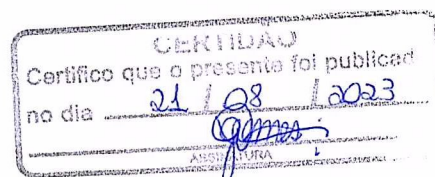 CERTIDÃO
Certifico que o presente foi publicad
no dia 21 / 08 / 2023
ASSINATURA